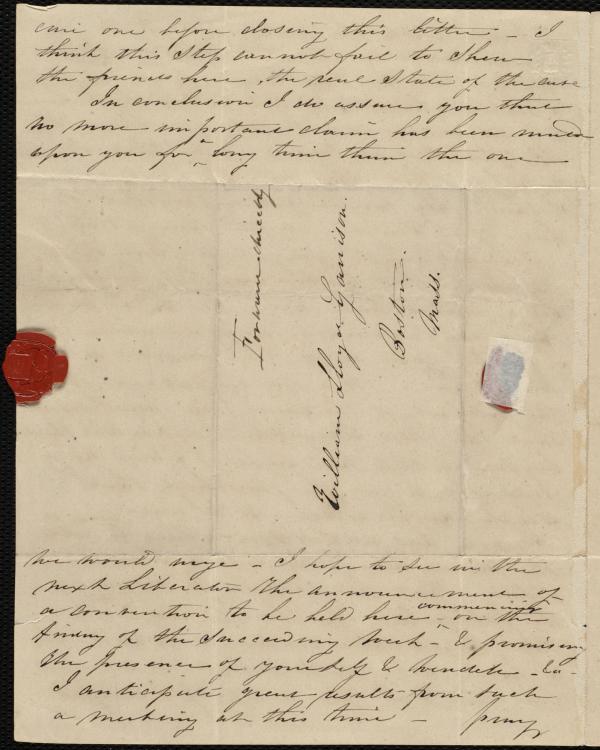 one before closing this letter - I
think this step cannot fail to shew
the friends here, the real state of the case
In conclusion I do assure you that
no more important claim has been made
upon you for a long time than the one
Forward directly
William Lloyd Garrison.
Boston.
Mass.
we would urge - I hope to see in the
next Liberator the announcement of
a convention to be held here commencing on the
of the succeeding week - & promising
the presence of yourself & - &c -
I anticipate great results from such
a meeting at this time - pray